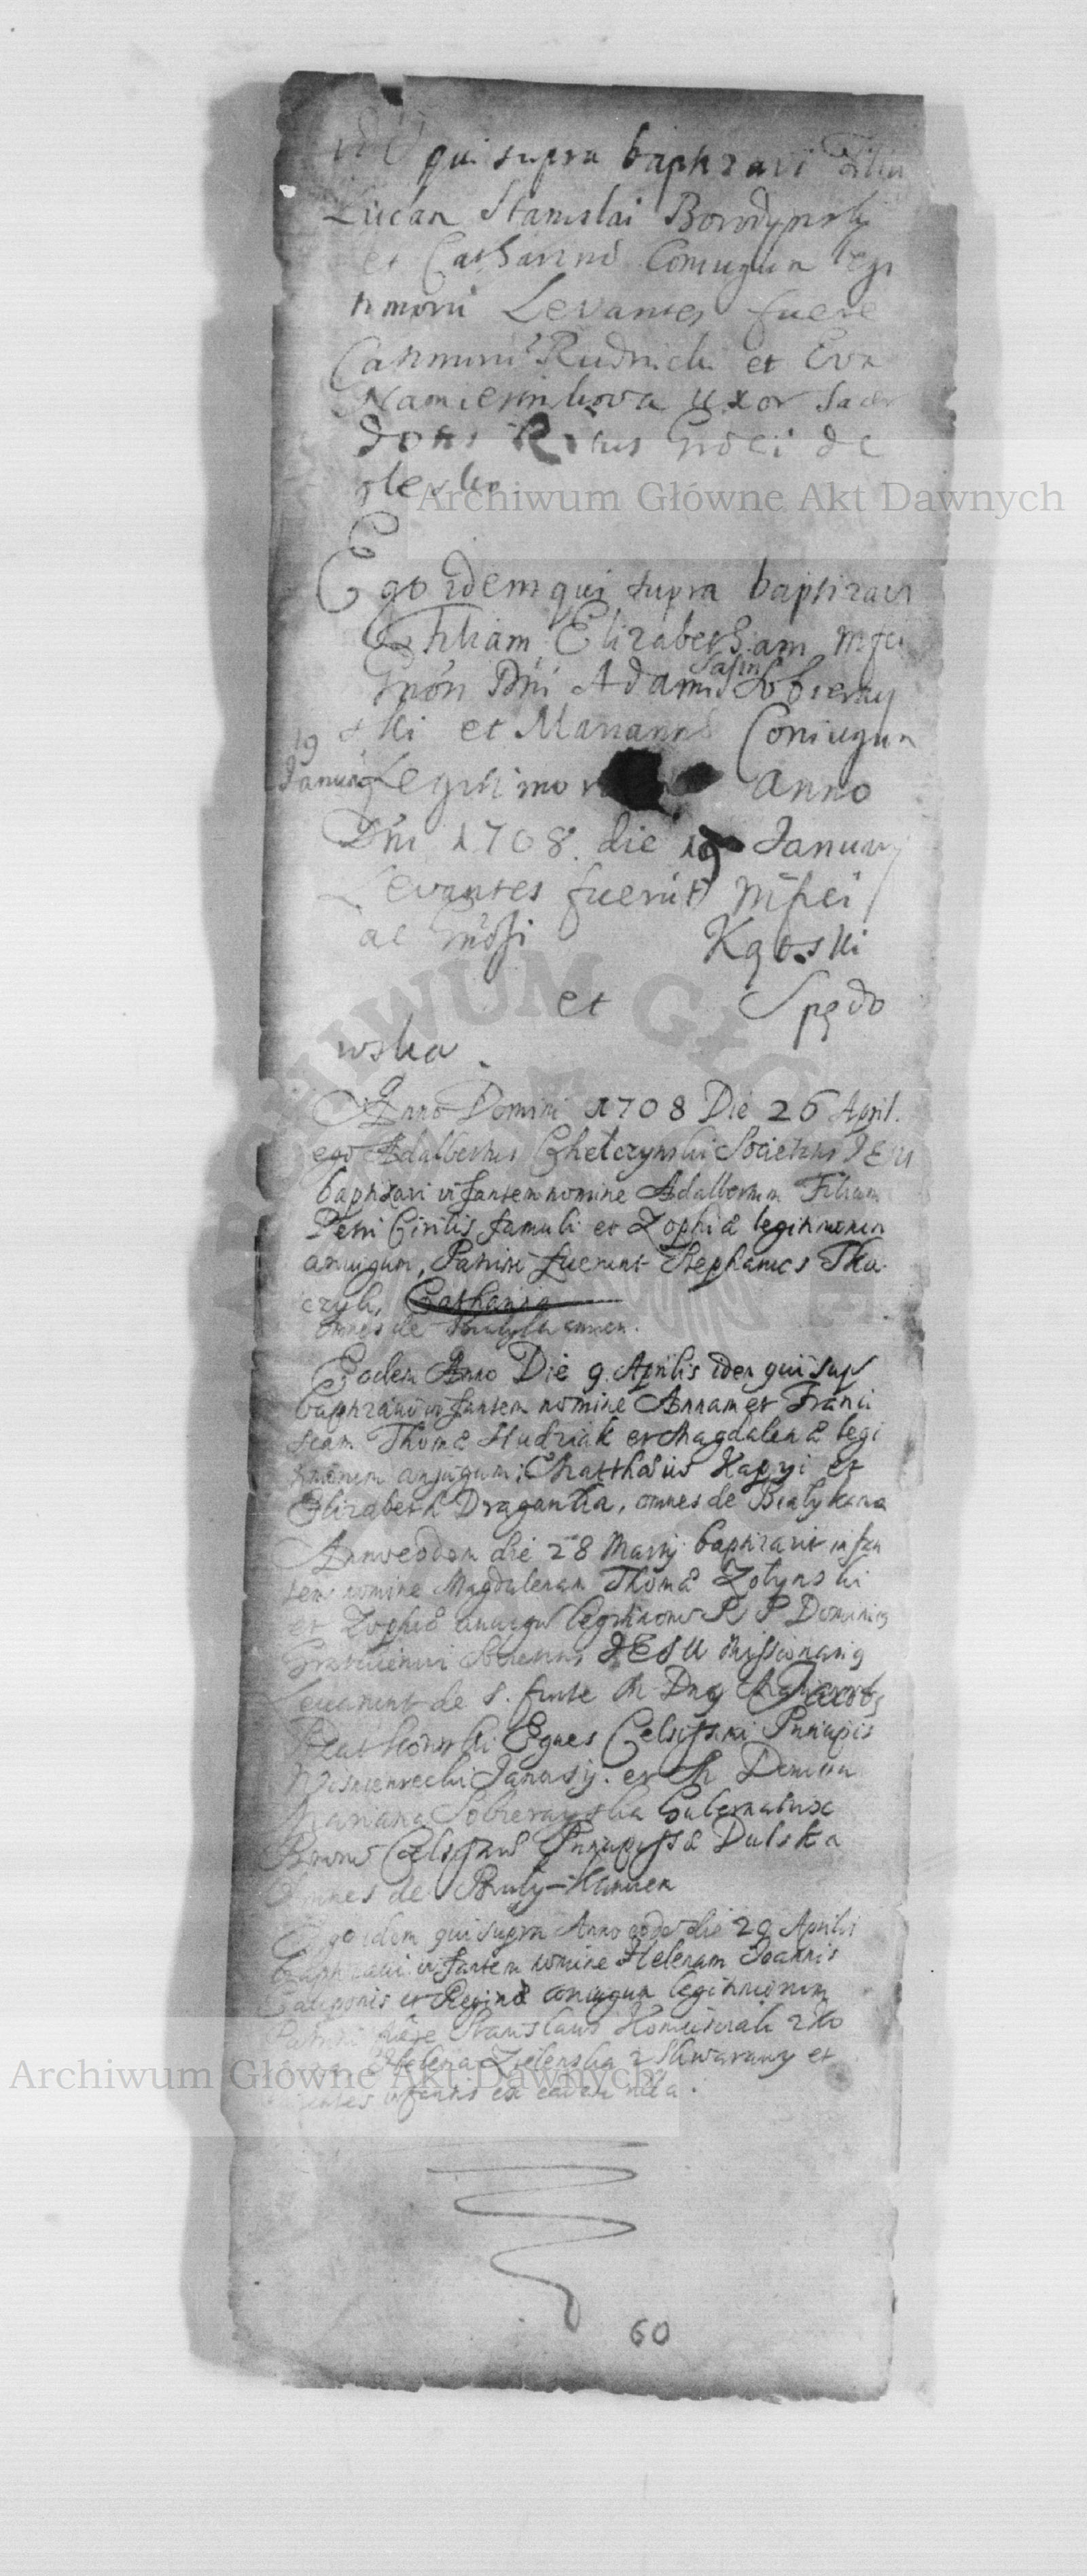 qui supra baptizavi Filiu
Lucan Stanislai Borodynsky
et Catharinæ Coniugun legi
timoru Levantes fuere
Casimirus Rudnicki et Eva
uxor Sacer
dotis Ritus Græci de
olesko
Archiwum Główne Akt Dawnych
Ego idem qui supra baptizavi
Filiam Elizabetham Mfci
Gnosi Dni Adami Sasin Sobieray
ski et Mariannæ Coniugun
19
Januarij Legitimoru Anno
Dni 1708. die 19 Januarij
Levantes fuerūt Mfici
ac Gnosi Kąt.ski
et Spędo
wska.
Anno Domini 1708 Die 26 April.
ego Adalbertus Chełczynski Societatis JESU
baptizavi infantem nomine Adalbertum Filium
Petri Cirilis famuli et Zophiæ legitimorum
coniugum, Patrini fuerunt Stephanus Tka
czyk, Catharina
omnes de Białykamien.
Eodem Anno Die 9. Aprilis idem qui supr
baptizavi infantem nomine Annam et Franci
scam Thomæ Hudziak et Magdalenæ legi
timorum conjugum: Matthæus Kapyi et
Elizabeth Dragantka, omnes de Białykamn
Anno eodem die 28 Martij baptizavit infan
tem nomine Magdalenam Thomæ Zolynski
et Zophiæ coniugu legitimoru R P Dominicus
JESU Missionarius
Levarunt de S. fonte M Dnus Jacobus
Eques Celsissimi Principis
Wisniowiecki Janusij. et M Domina
Mariana Sobierayska Gubernatrix
Celsissimæ Principissæ Dulska
Omnes de Biały-Kamien
Ego idem qui supra Anno eodem die 29 Aprilis
baptizavi infantem nomine Helenam Joannis
Cauponis et Reginæ coniugum legitimorum
Patrini fuere Stanislaus
Helena Zielenska z Skwarzawy et
infantis ex eadem villa.
Archiwum Główne Akt Dawnych
60